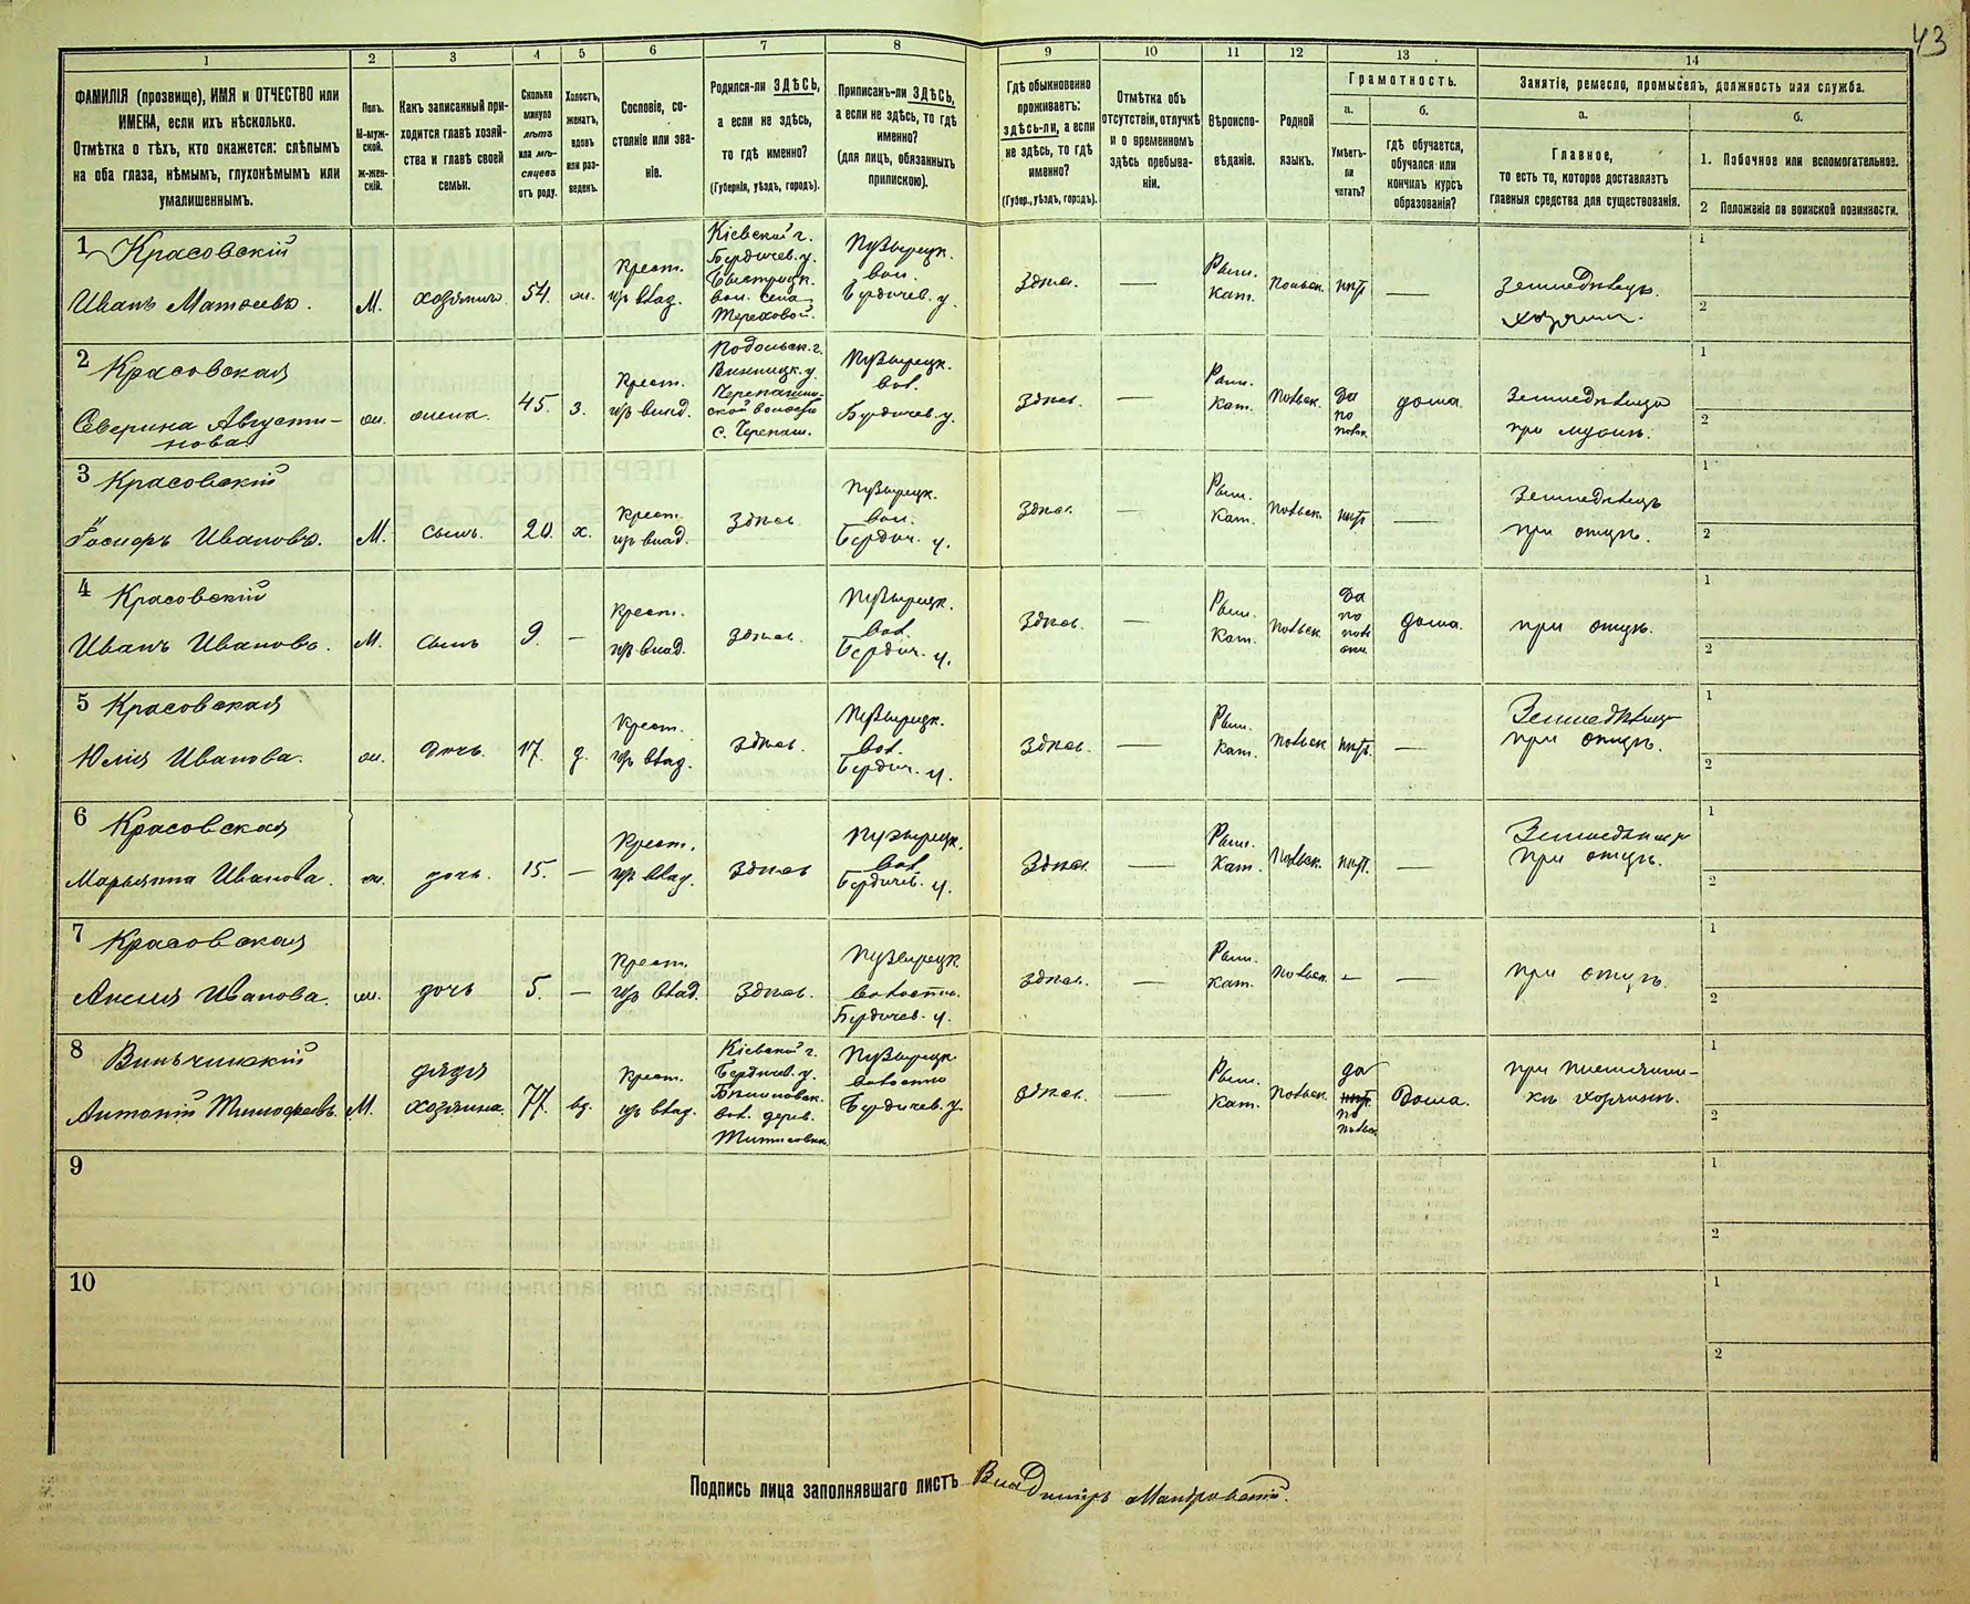 43
1
2
3
4
5
6
7
8
9
10
11
12
13
14
ФАМИЛІЯ (прозвище), ИМЯ и ОТЧЕСТВО или
ИМЕНА, если ихъ нѣсколько.
Отмѣтка о тѣхъ, кто окажется: слѣпымъ
на оба глаза, нѣмымъ, глухонѣмымъ или
умалишеннымъ.
Полъ.
М-муж-
ской.
Ж-жен-
скій.
Какъ записанный при-
ходится главѣ хозяй-
ства и главѣ своей
семьи.
Сколько
минуло
лѣтъ
или мѣ-
сяцевъ
отъ роду.
Холостъ,
женатъ,
вдовъ
или раз-
веденъ.
Сословіе, со-
стояніе или зва-
ніе.
Родился-ли ЗДѢСЬ,
а если не здѣсь,
то гдѣ именно?
(Губернія, уѣздъ, городъ).
Приписанъ-ли ЗДѢСЬ,
а если не здѣсь, то гдѣ
именно?
(для лицъ, обязанныхъ
припискою).
Гдѣ обыкновенно
проживаетъ:
здѣсь-ли, а если
не здѣсь, то гдѣ
именно?
(Губер., уѣздъ, городъ).
Отмѣтка объ
отсутствіи, отлучкѣ
и о временномъ
здѣсь пребыва-
ніи.
Вѣроиспо-
вѣданіе.
Родной
языкъ.
Грамотность.
а.
Умѣетъ-
ли
читать?
б.
гдѣ обучается,
обучался или
кончилъ курсъ
образованія?
Занятіе, ремесло, промыселъ, должность или служба.
а.
Главное,
то есть то, которое доставляетъ
главныя средства для существованія.
б.
1. Побочное или вспомогательное.
2 Положеніе по воинской повинности.
1 Красовскій
Иванъ Матѳеевъ.
М.
хозяинъ
54.
ж.
Крест.
изъ влад.
Кіевской г.
Бердичев. у.
Быстрицк.
вол. села
Тереховой.
Пузырецк.
вол.
Бердичев. у.
Здѣсь.
—
Рим.
Кат.
Польск.
нѣтъ
—
Земледѣлецъ.
хозяинъ.
1
2
2 Красовская
Северина Августи-
нова
ж.
жена.
45.
з.
Крест.
изъ влад.
Подольск. г.
Винницк. у.
Черепашин-
ской волости
с. Черепаш.
Пузырецк.
вол.
Бердичев. у.
Здѣсь.
—
Рим.
Кат.
Польск.
Да
по
польск.
дома.
Земледѣлица
при мужѣ.
1
2
3 Красовскій
Гасперъ Ивановъ.
М.
сынъ.
20.
х.
Крест.
изъ влад.
Здѣсь
Пузырецк.
вол.
Бердич. у.
Здѣсь.
—
Рим.
Кат.
Польск.
нѣтъ
—
Земледѣлецъ
при отцѣ.
1
2
4 Красовскій
Иванъ Ивановъ.
М.
сынъ
9.
—
Крест.
изъ влад.
здѣсь.
Пузырецк.
вол.
Бердич. у.
Здѣсь.
—
Рим.
Кат.
Польск.
Да
по
поль
ски
дома.
при отцѣ.
1
2
5 Красовская
Юлія Иванова.
ж.
дочь.
17.
д.
Крест.
изъ влад.
здѣсь.
Пузырецк.
вол.
Бердич. у.
Здѣсь.
—
Рим.
Кат.
Польск.
нѣтъ.
—
Земледѣлица
при отцѣ.
1
2
6 Красовская
Марьянна Иванова.
ж.
дочь.
15.
—
Крест.
изъ влад.
здѣсь
Пузырецк.
вол.
Бердичев. у.
Здѣсь.
—
Рим.
Кат.
Польск.
нѣт.
—
Земледѣлица
при отцѣ.
1
2
7 Красовская
Анеля Иванова.
ж.
дочь
5.
—
Крест.
изъ влад.
Здѣсь.
Пузырецк.
волости.
Бердичев. у.
здѣсь.
—
Рим.
Кат.
Польск.
—
—
при отцѣ.
1
2
8 Виньчинскій
Антоній Тимофеевъ.
М.
дядя
хозяина.
77.
вд.
Крест.
изъ влад.
Кіевской г.
Бердичев. у.
вол. дерев.
Пузырецк.
волости
Бердичев. у.
здѣсь.
—
Рим.
Кат.
Польск.
да
нѣт.
по
польск.
Дома.
при племянни-
кѣ хозяинѣ.
1
2
9
1
2
10
1
2
Подпись лица заполнявшаго листъ Владиміръ